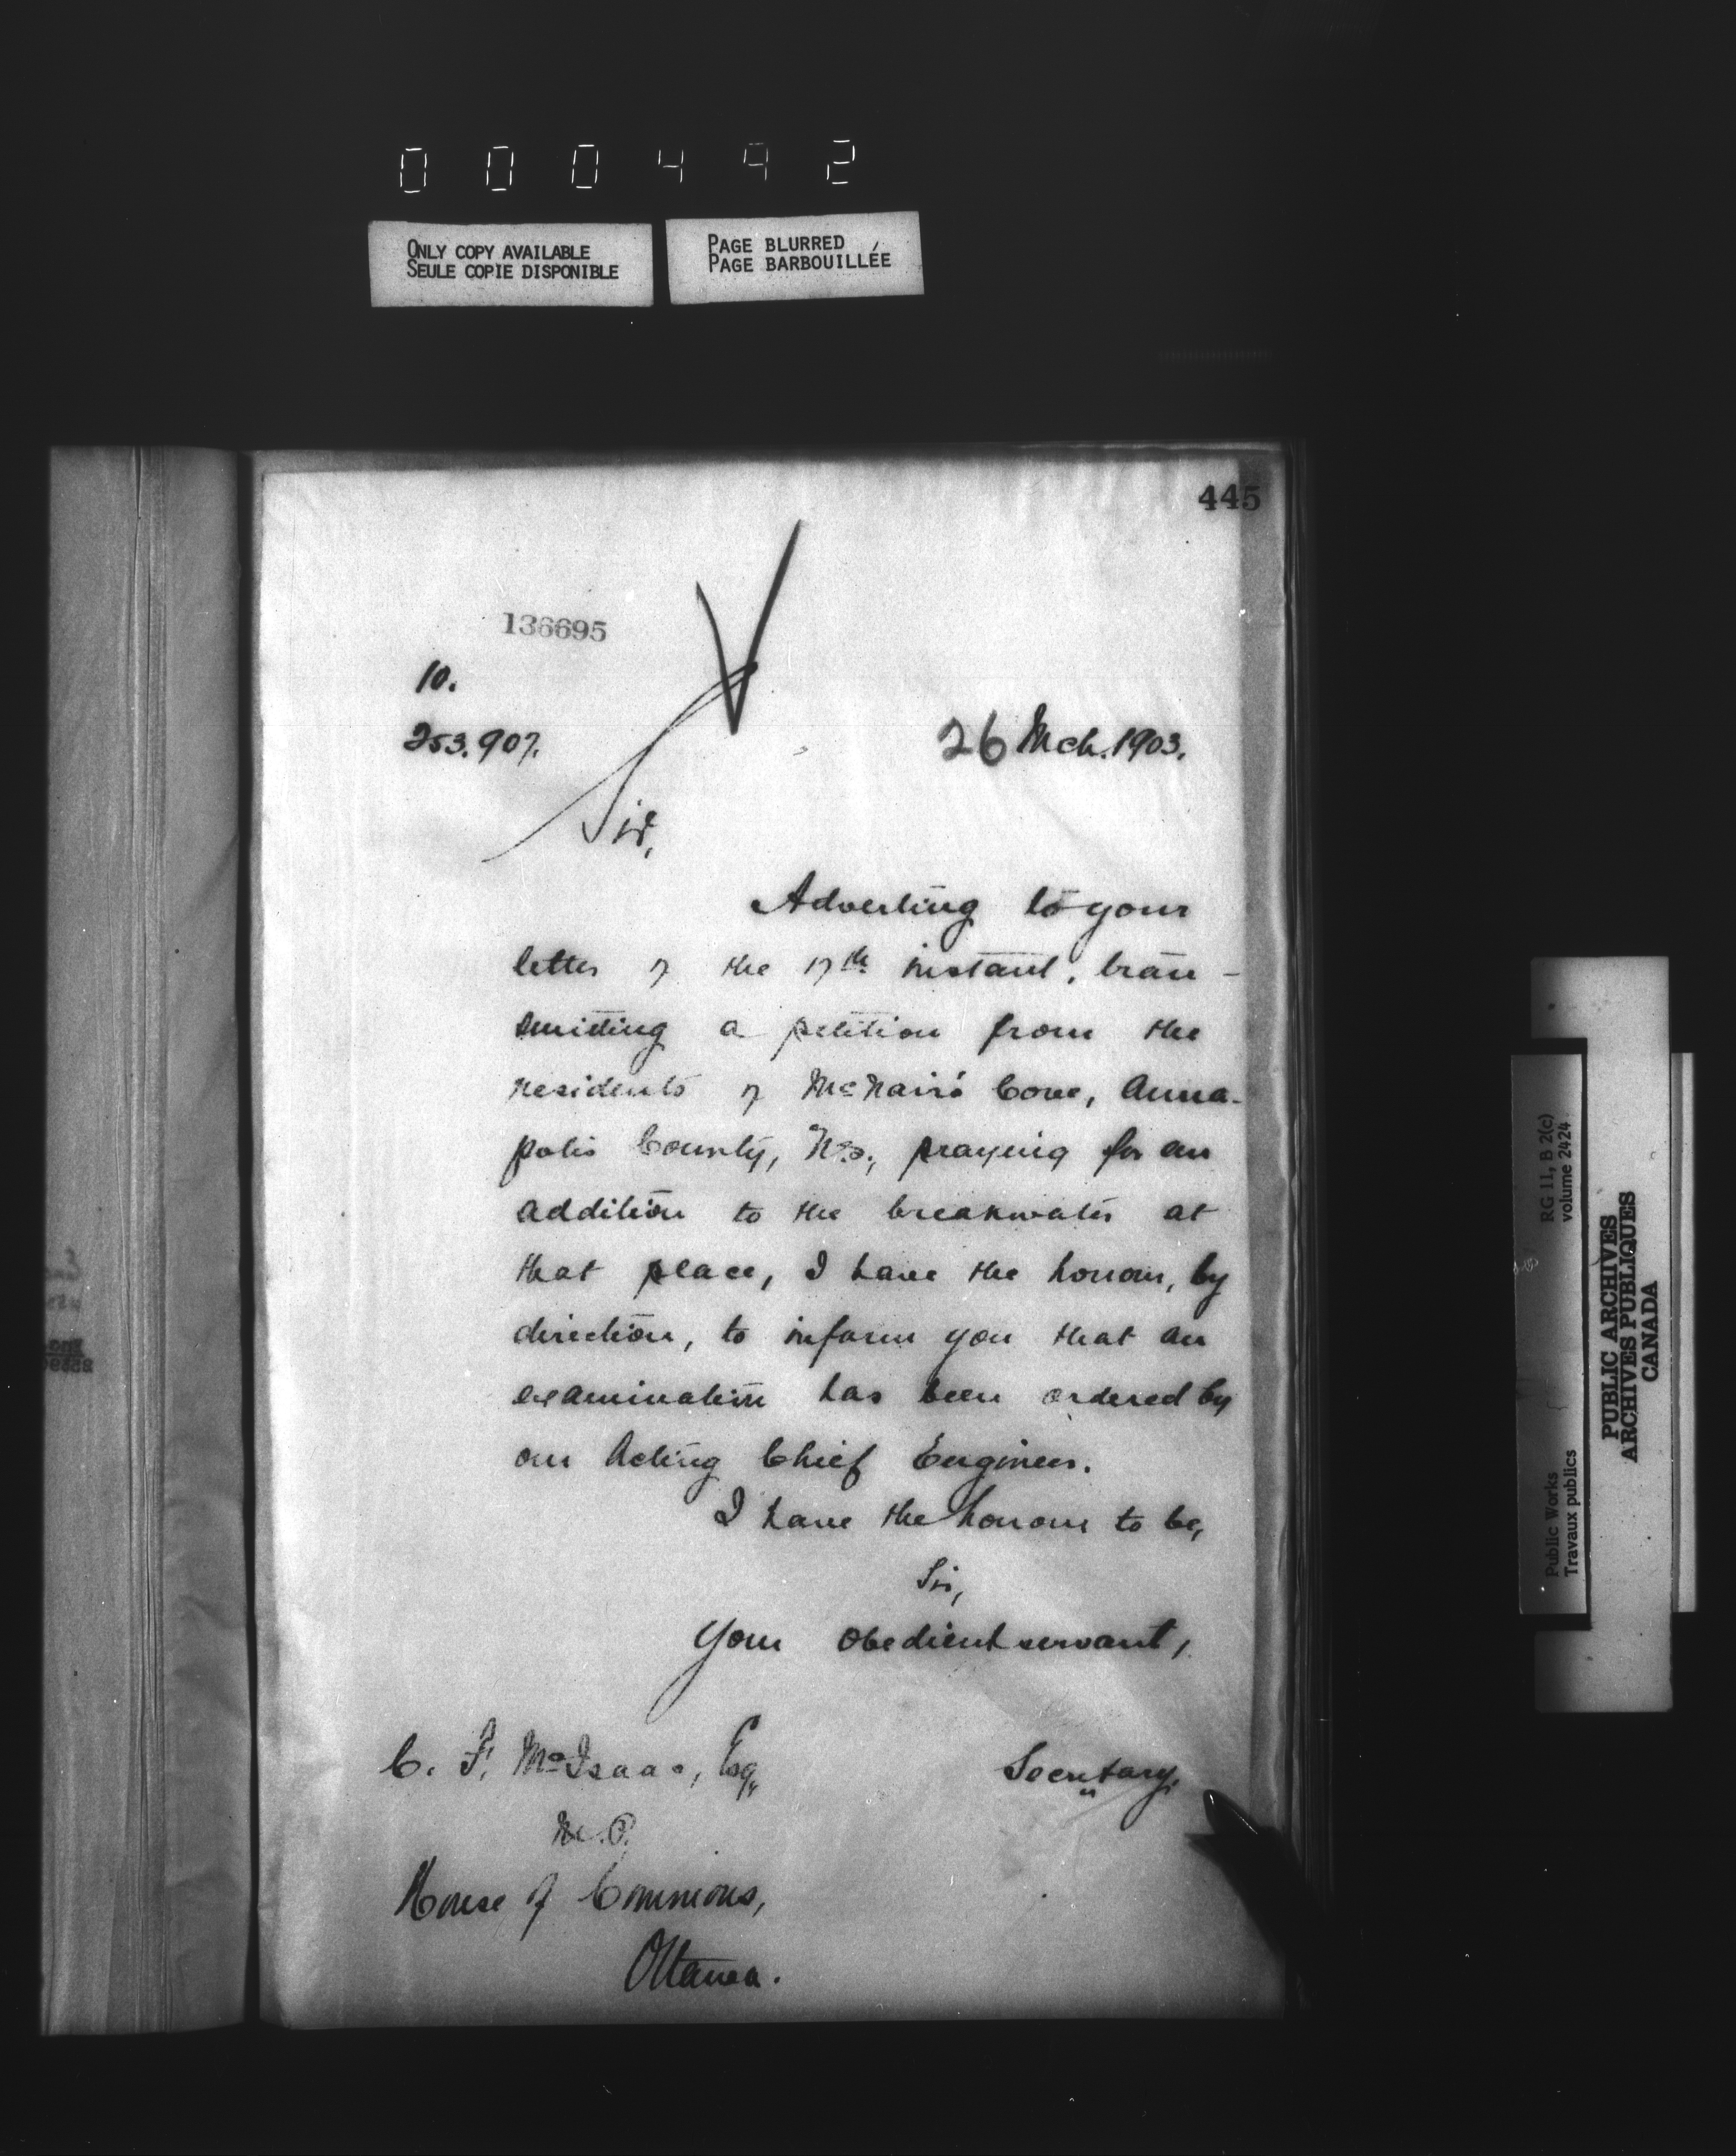 000492
ONLY COPY AVAILABLE
SEULE COPIE DISPONIBLE
PAGE BLURRED
PAGE BARBOUILLÉE
445
136695
10.
253.907.
26 Mch. 1903.
Sir,
Adverting to your
letter of the 17th instant, tran-
smitting a petition from the
residents of McNair's Cove, Anna-
polis County, N.S., praying for an
addition to the breakwater at
that place, I have the honour, by
direction, to inform you that an
examination has been ordered by
our Acting Chief Engineer.
I have the honour to be,
Sir,
Your obedient servant,
Secretary.
C. F. McIsaac, Esq.,
M.P.
House of Commons,
Ottawa.
Public Works
Travaux publics
RG 11, B 2(c)
volume 2424
PUBLIC ARCHIVES
ARCHIVES PUBLIQUES
CANADA